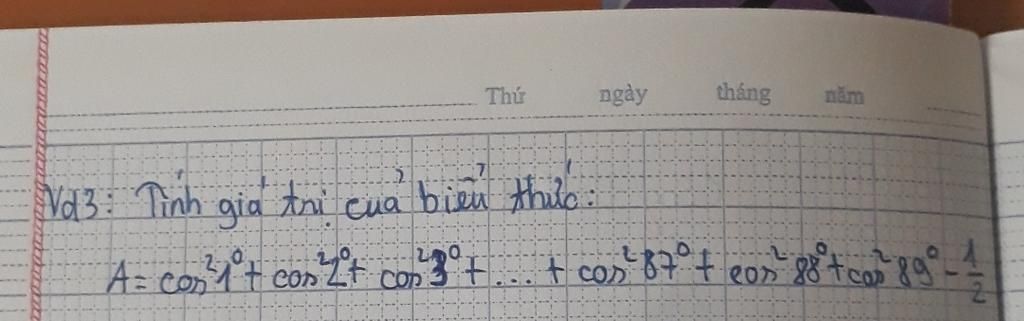 Thứ ngày tháng năm
Vd3: Tính giá trị của biểu thức:
A = cos²1⁰ + cos²2⁰ + cos²3⁰ + ... + cos²87⁰ + cos²88⁰ + cos²89⁰ - 1/2